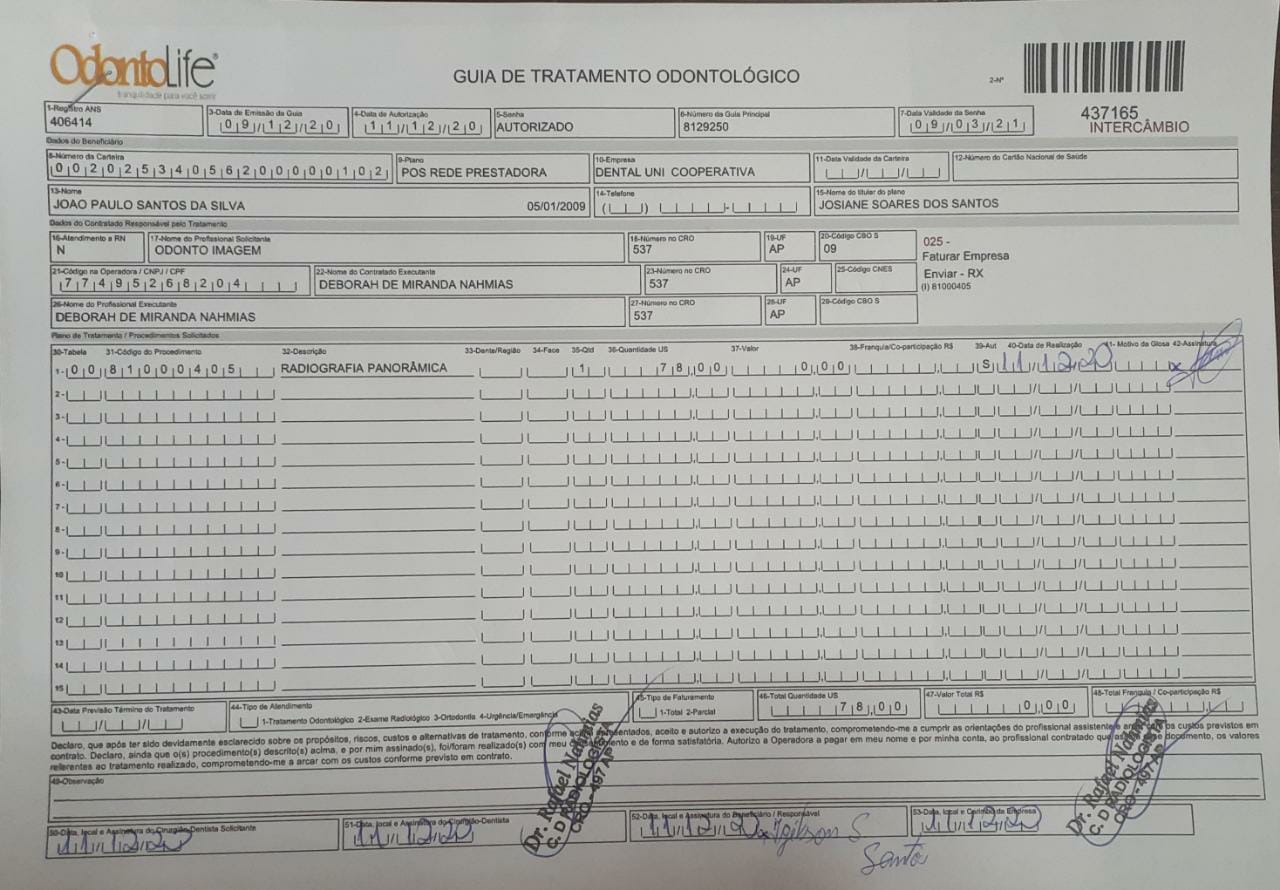 OdontoLife®
tranquilidade para você sorrir
GUIA DE TRATAMENTO ODONTOLÓGICO
2-Nº
437165
INTERCÂMBIO
1-Registro ANS
406414
3-Data de Emissão da Guia
09/12/20
4-Data de Autorização
11/12/20
5-Senha
AUTORIZADO
6-Número da Guia Principal
8129250
7-Data Validade da Senha
09/03/21
Dados do Beneficiário
8-Número da Carteira
00202534056200000102
9-Plano
POS REDE PRESTADORA
10-Empresa
DENTAL UNI COOPERATIVA
11-Data Validade da Carteira
12-Número do Cartão Nacional de Saúde
13-Nome
JOAO PAULO SANTOS DA SILVA 05/01/2009
14-Telefone
15-Nome do titular do plano
JOSIANE SOARES DOS SANTOS
Dados do Contratado Responsável pelo Tratamento
16-Atendimento a RN
N
17-Nome do Profissional Solicitante
ODONTO IMAGEM
18-Número no CRO
537
19-UF
AP
20-Código CBO S
09
025 -
Faturar Empresa
Enviar - RX
(I) 81000405
21-Código na Operadora / CNPJ / CPF
77495268204
22-Nome do Contratado Executante
DEBORAH DE MIRANDA NAHMIAS
23-Número no CRO
537
24-UF
AP
25-Código CNES
26-Nome do Profissional Executante
DEBORAH DE MIRANDA NAHMIAS
27-Número no CRO
537
28-UF
AP
29-Código CBO S
Plano de Tratamento / Procedimentos Solicitados
30-Tabela 31-Código do Procedimento 32-Descrição 33-Dente/Região 34-Face 35-Qtd 36-Quantidade US 37-Valor 38-Franquia/Co-participação R$ 39-Aut 40-Data de Realização 41- Motivo da Glosa 42-Assinatura
1- 00 81000405 RADIOGRAFIA PANORÂMICA 1 78,00 0,00 S 11/12/20
2-
3-
4-
5-
6-
7-
8-
9-
10
11
12
13
14
15
43-Data Previsão Término do Tratamento
44-Tipo de Atendimento
1-Tratamento Odontológico 2-Exame Radiológico 3-Ortodontia 4-Urgência/Emergência
45-Tipo de Faturamento
1-Total 2-Parcial
46-Total Quantidade US
78,00
47-Valor Total R$
0,00
48-Total Franquia / Co-participação R$
Declaro, que após ter sido devidamente esclarecido sobre os propósitos, riscos, custos e alternativas de tratamento, conforme acima apresentados, aceito e autorizo a execução do tratamento, comprometendo-me a cumprir as orientações do profissional assistente e arcar com os custos previstos em
contrato. Declaro, ainda que o(s) procedimento(s) descrito(s) acima, e por mim assinado(s), foi/foram realizado(s) com meu consentimento e de forma satisfatória. Autorizo a Operadora a pagar em meu nome e por minha conta, ao profissional contratado que assina esse documento, os valores
referentes ao tratamento realizado, comprometendo-me a arcar com os custos conforme previsto em contrato.
49-Observação
50-Data, local e Assinatura do Cirurgião-Dentista Solicitante
11/12/20
51-Data, local e Assinatura do Cirurgião-Dentista
11/12/20
Dr. Rafael Nahmias
C. D RADIOLOGISTA
CRO - 497 AP
52-Data, local e Assinatura do Beneficiário / Responsável
11/12/20
53-Data, local e Carimbo da Empresa
11/12/20
Dr. Rafael Nahmias
C. D RADIOLOGISTA
CRO - 497 AP